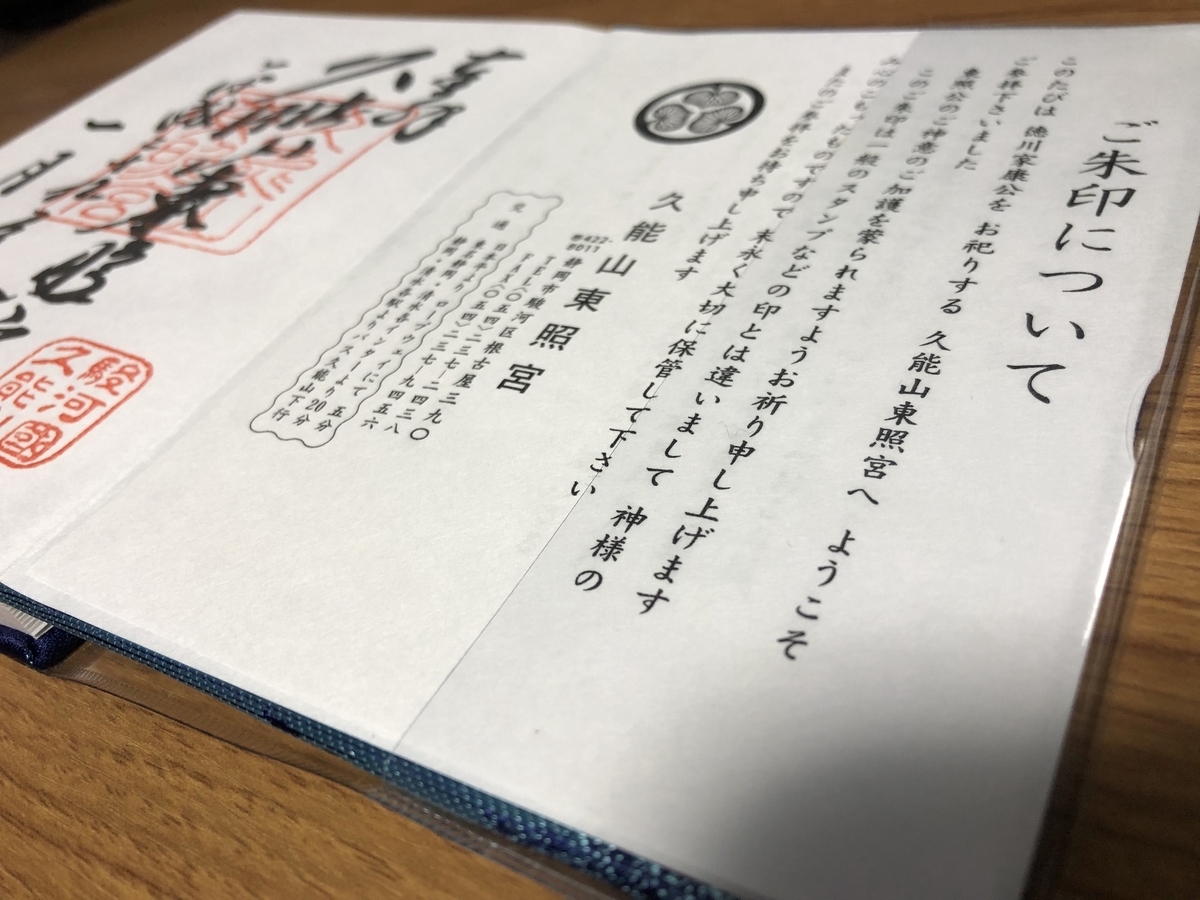 ご朱印について
このたびは 徳川家康公を お祀りする 久能山東照宮へ ようこそ
ご参拝下さいました
東照公のご神意のご加護を蒙られますようお祈り申し上げます
このご朱印は一般のスタンプなどの印とは違いまして 神様の
み心のこもったものですので 末永く大切に保管して下さい
またのご参拝をお待ち申し上げます
久能山東照宮
〒422-8011 静岡市駿河区根古屋三九〇
TEL〈〇五四〉二三七-二四三八
FAX〈〇五四〉二三七-九四五六
交通 日本平よりロープウェイにて 五分
行
奉拝
一月
駿河國
久能山